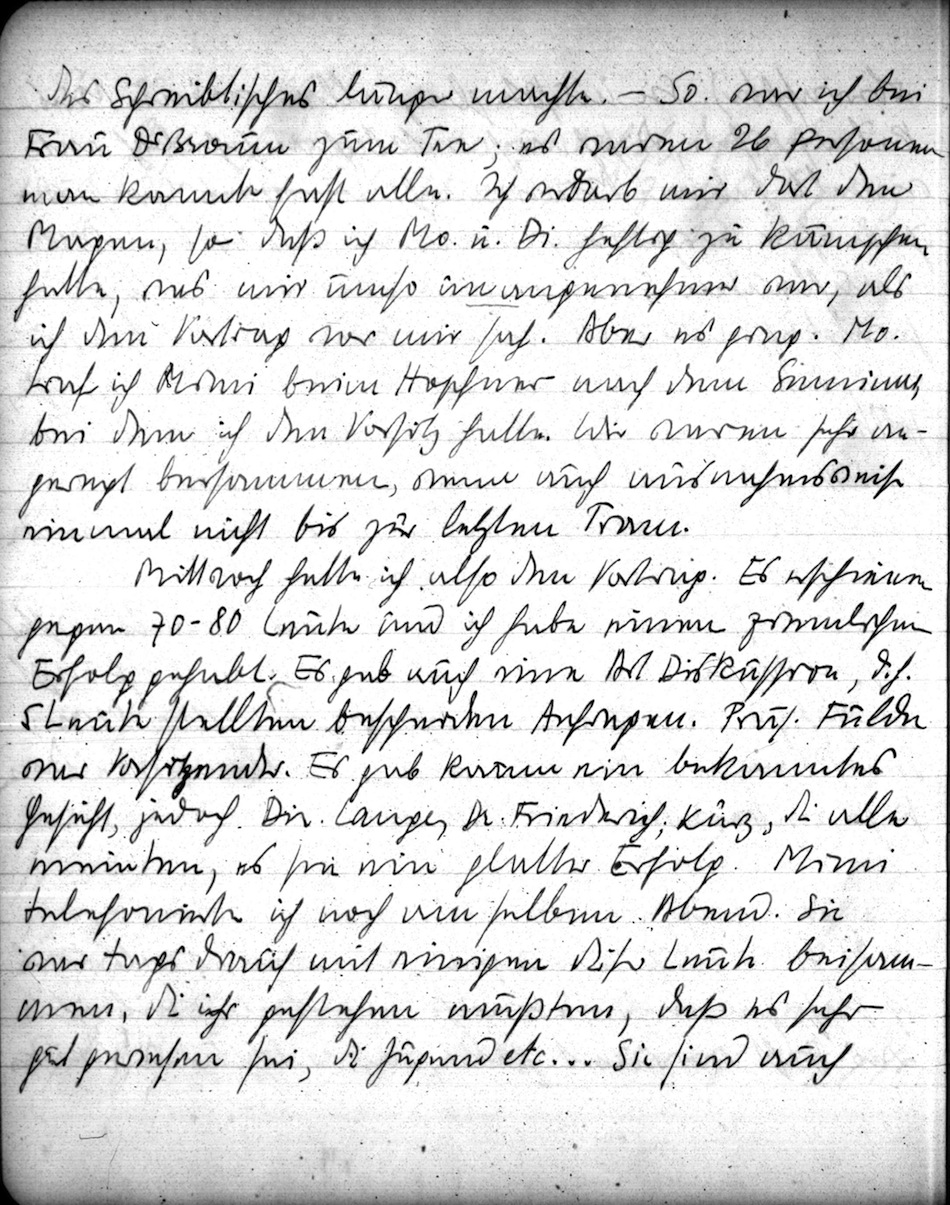 des Schreibtisches länger machte. – So. war ich bei
Frau DrBraun zum Tee; es waren 26 Personen
man kannte fast alle. Ich verdarb mir dort den
Magen, so daß ich Mo. u. Di. heftig zu kämpfen
hatte, was mir umso unangenehmer war, als
ich den Vortrag vor mir sah. Aber es ging. Mo.
traf ich Mimi beim Hopfner nach dem Seminar,
bei dem ich den Vorsitz hatte. Wir waren sehr an-
geregt beisammen, wenn auch ausnahmsweise
einmal nicht bis zur letzten Tram.
Mittwoch hatte ich also den Vortrag. Es erschienen
gegen 70-80 Leute und ich habe einen ziemlichen
Erfolg gehabt. Es gab auch eine Art Diskussion, d.h.
5 Leute stellten bescheiden Anfragen. Präs. Fulda
war Vorsitzender. Es gab kaum ein bekanntes
Gesicht, jedoch Dir. Lange, Dr. Friederich, Kurz, die alle
meinten, es sei ein glatter Erfolg. Mimi
telefonierte ich noch am selben Abend. Sie
war tags drauf mit einigen dieser Leute beisam-
men, die ihr gestehen mußten, daß es sehr
gut gewesen sei, die Jugend etc... Sie sind auch